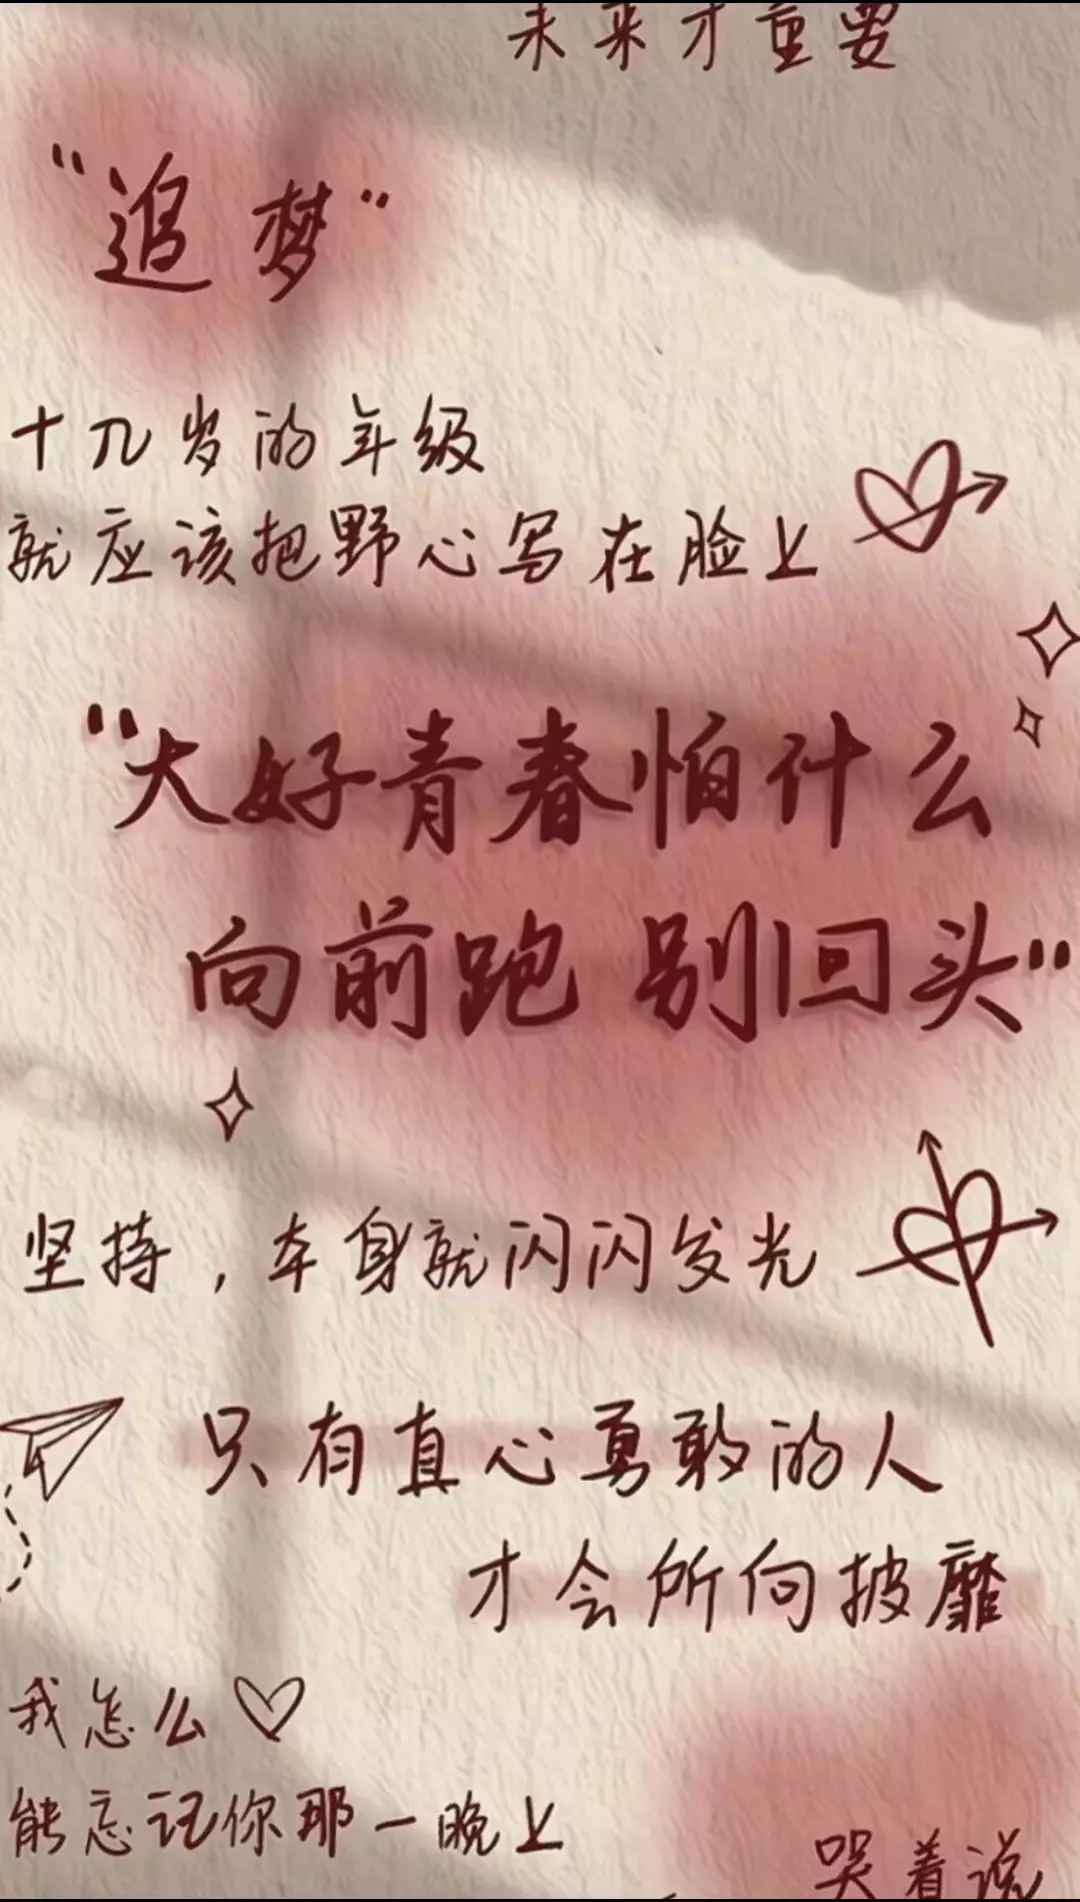 未来才重要
"追梦"
十几岁的年级
就应该把野心写在脸上
"大好青春怕什么
向前跑 别回头"
坚持，本身就闪闪发光
只有真心勇敢的人
才会所向披靡
我怎么
能忘记你那一晚上
哭着说